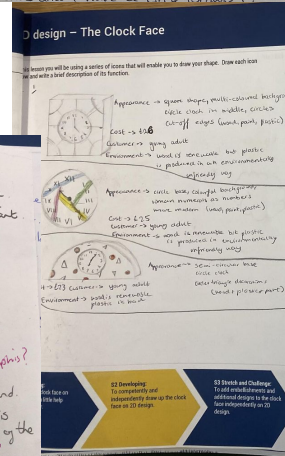 D design – The Clock Face
lesson you will be using a series of icons that will enable you to draw your shape. Draw each icon
and write a brief description of its function.
Appearance → square shape, multi-coloured
circle clock in middle, circles
cut-off edges (wood, paint, plastic)
Cost →
Customer → young adult
Environment → wood is renewable but plastic
is produced in an environmentally
unfriendly way
Appearance → circle base, colourful background,
roman numerals as numbers
more modern (wood, paint, plastic)
Cost → £25
Customer → young adult
Environment → wood is renewable but plastic
is produced in environmentally
unfriendly way
XII
III
VI
IX
Appearance → semi-circular base
circle clock
(wood + plastic + paint)
Customer → young adult
Environment → wood is renewable
plastic is bad
this?
is
of the
clock face on
little help
S2 Developing:
To competently and
independently draw up the clock
face on 2D design.
S3 Stretch and Challenge:
To add embellishments and
additional designs to the clock
face independently on 2D
design.